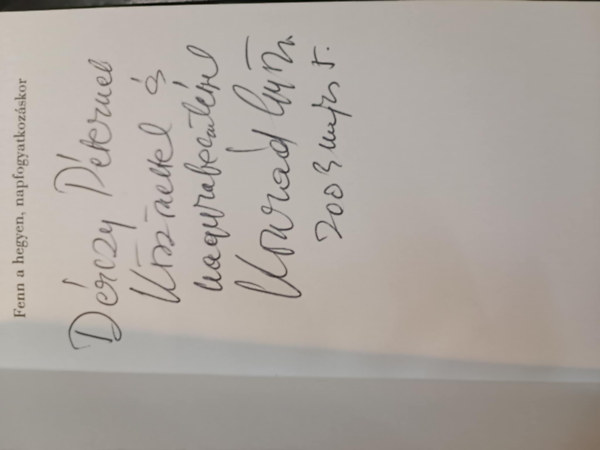 Fenn a hegyen, napfogyatkozáskor
Dérczy Péternek
köszönettel és
nagyrabecsüléssel
Konrád György
2003 máj. 5.